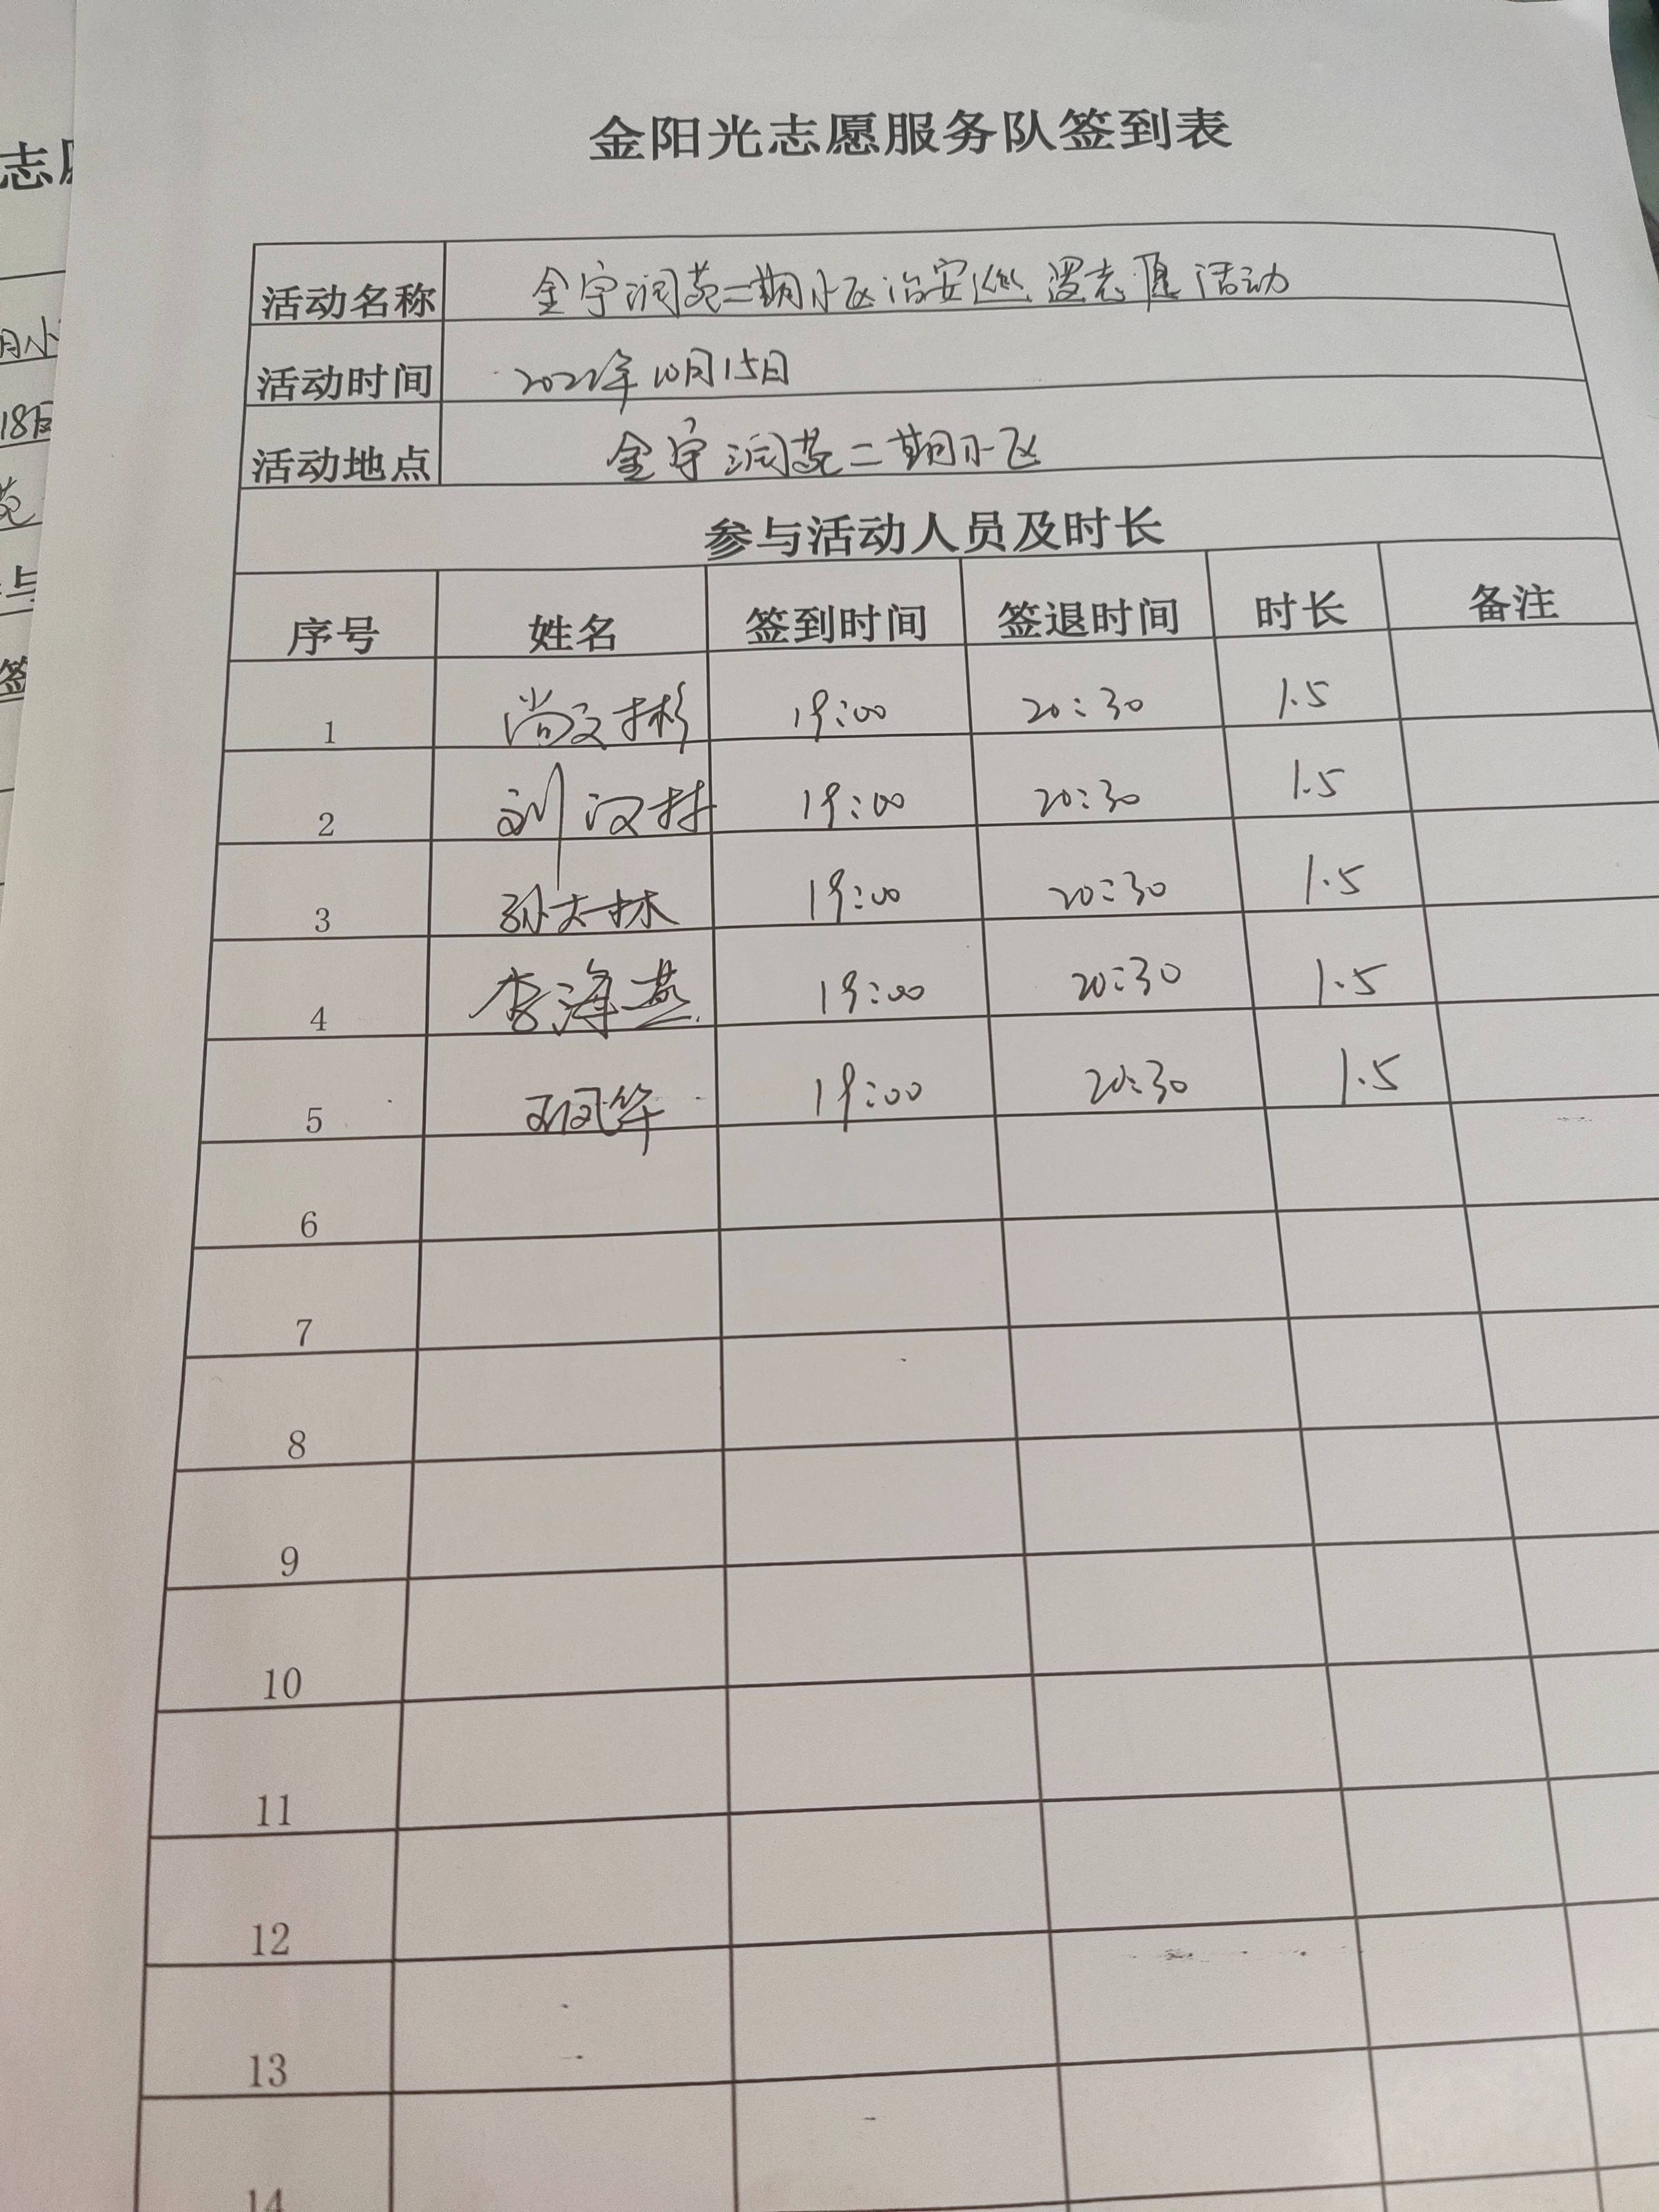 金阳光志愿服务队签到表
活动名称 金宇润苑二期小区治安巡逻志愿活动
活动时间 2022年10月15日
活动地点 金宇润苑二期小区
参与活动人员及时长
序号 姓名 签到时间 签退时间 时长 备注
1 尚文彬 19:00 20:30 1.5
2 刘汉村 19:00 20:30 1.5
3 孙大林 19:00 20:30 1.5
4 李海燕 19:00 20:30 1.5
5 19:00 20:30 1.5
6
7
8
9
10
11
12
13
14
志
月小
18日
苑
与
签